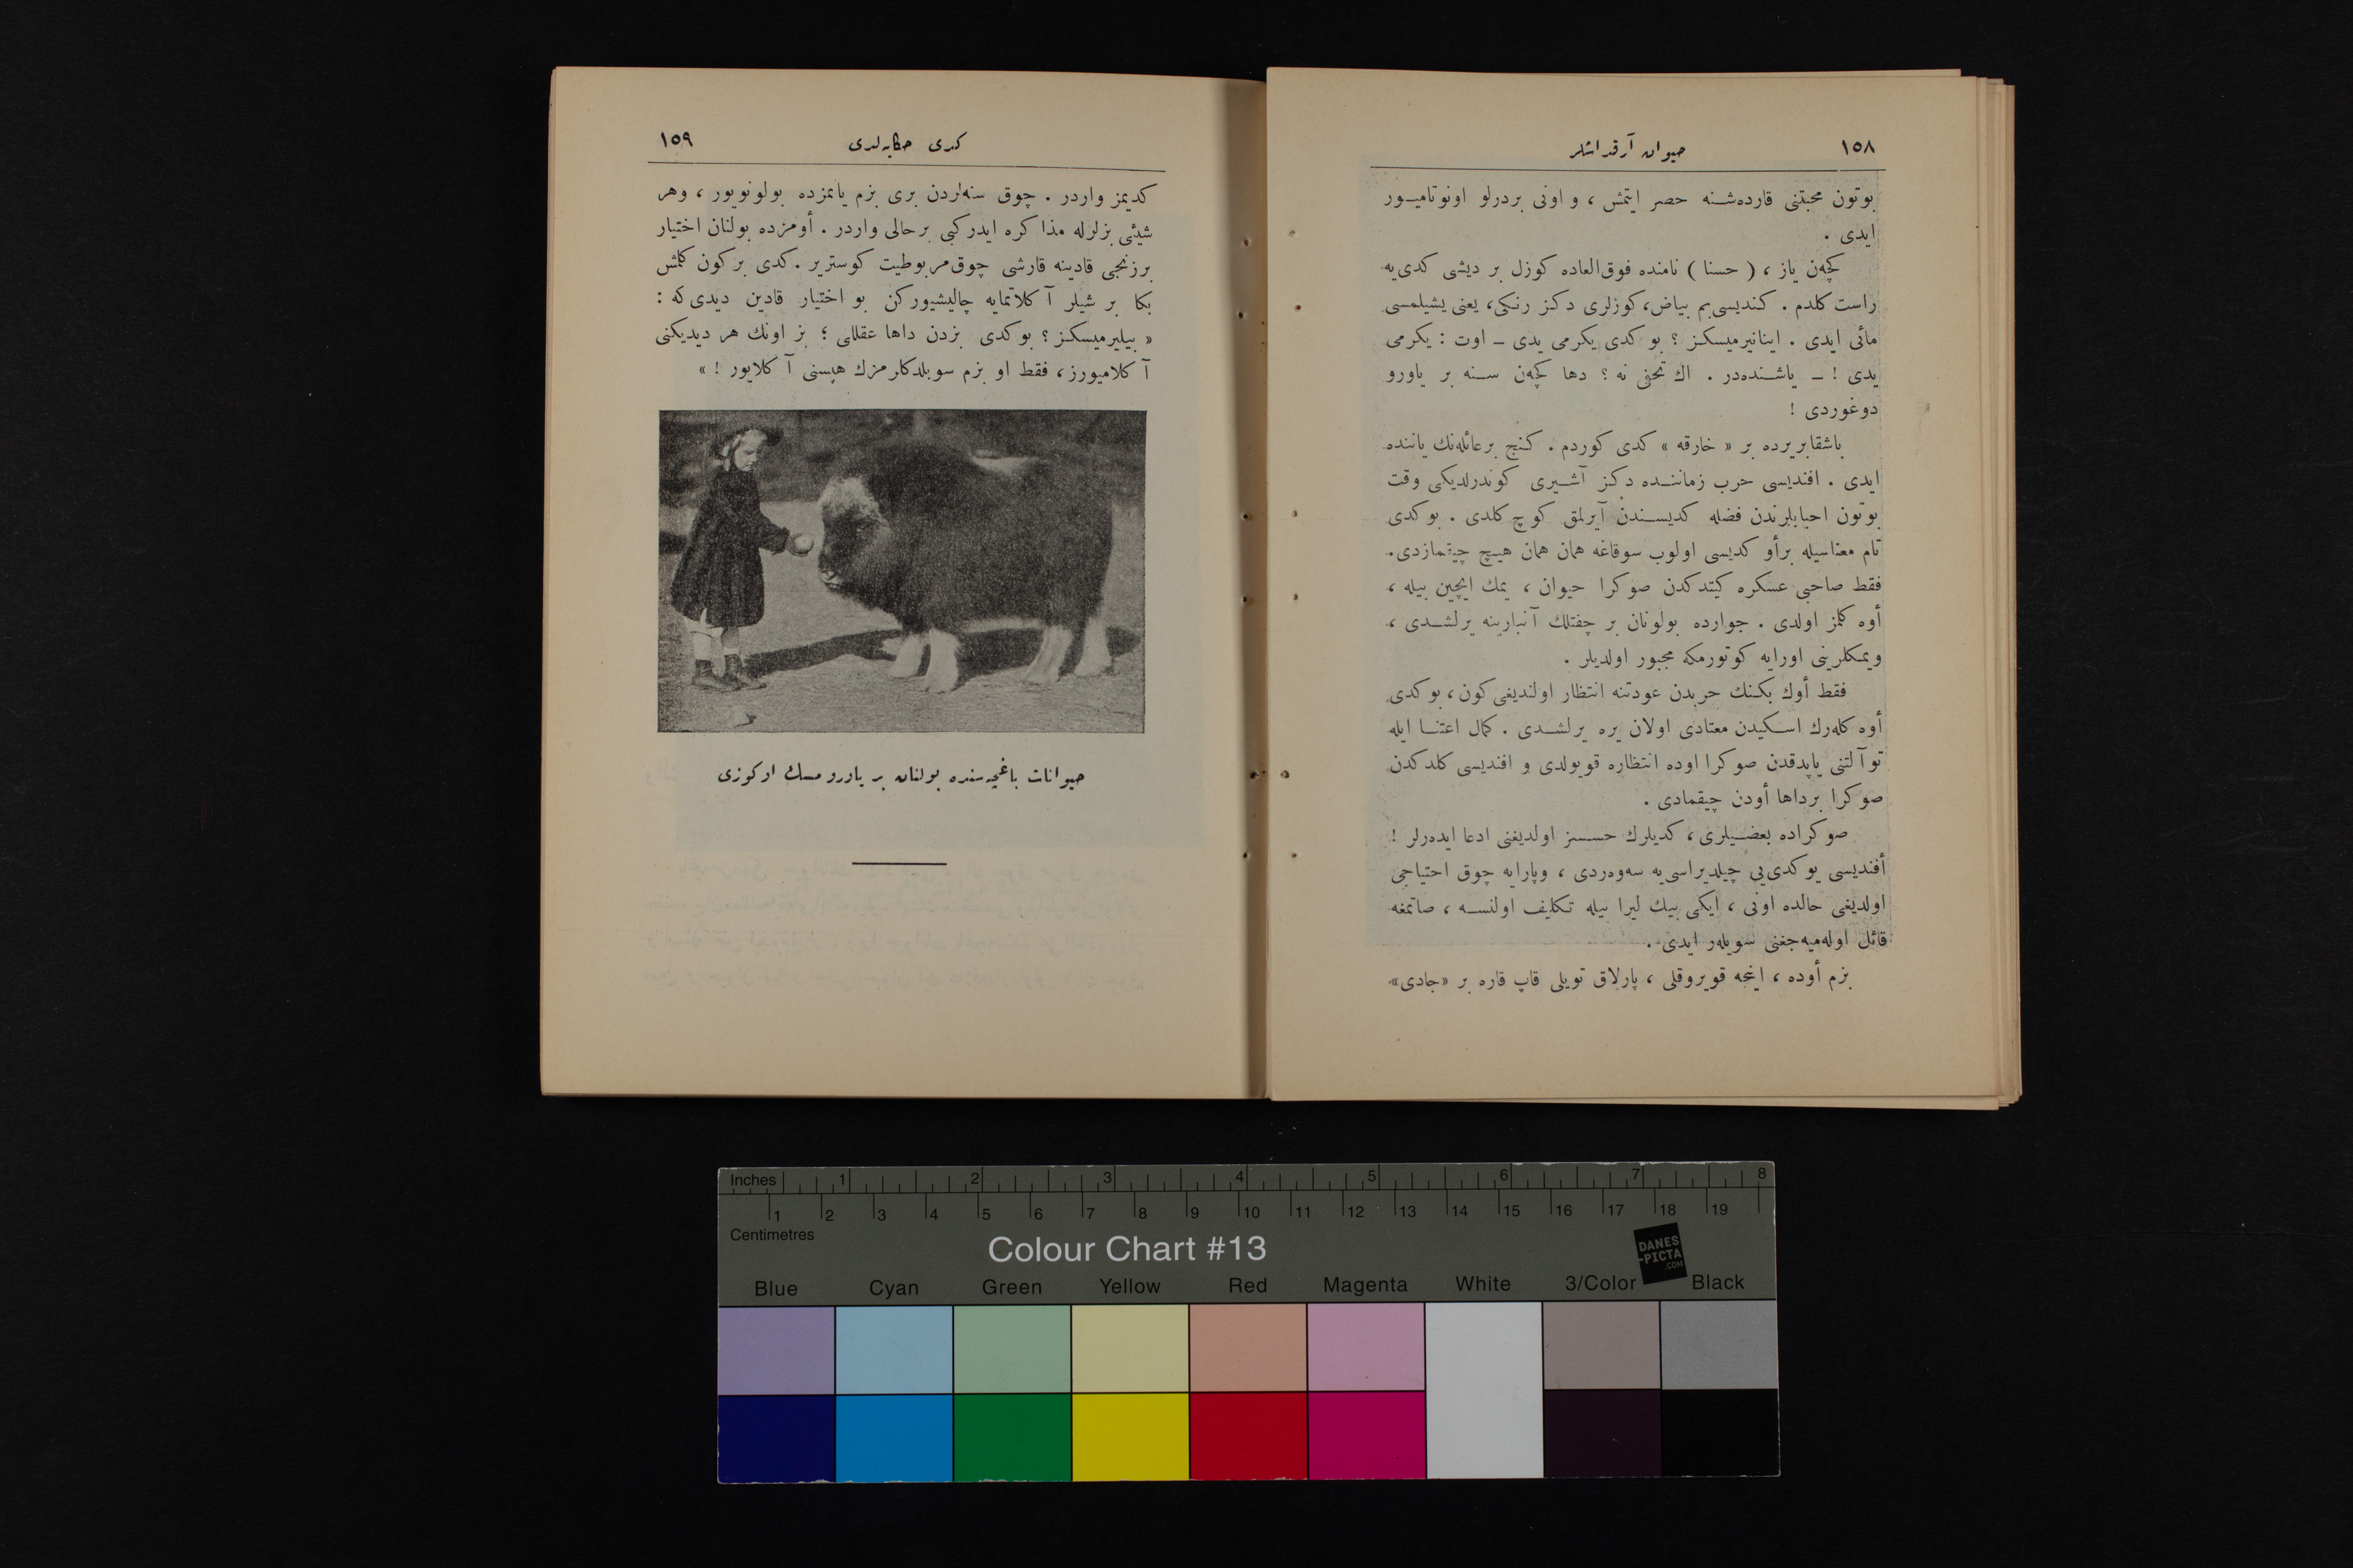 ١٥٨
حیوان آرقداشلر
بوتون محبتنی قارده‌شنه حصر ایتمش ، و اونی بردرلو اونوتامیور
ایدی .
کچه‌ن یاز ، ( حسنا ) نامنده فوق‌العاده کوزل بر دیشی کدی‌یه
راست کلدم . کندیسی‌بم بیاض، کوزلری دکز رنکی، یعنی یشیلمسی
مائی ایدی . اینانیرمیسکز ؟ بو کدی یکرمی یدی ــ اوت : یکرمی
یدی ! ــ یاشنده‌در . اك تحفی نه ؟ دها کچه‌ن سنه بر یاورو
دوغوردی !
باشقابریرده بر « خارقه » کدی کوردم . کنج برعائله‌نك یاننده
ایدی . افندیسی حرب زماننده دکز آشیری کوندرلدیکی وقت
بوتون احبابلرندن فضله کدیسندن آیرلمق کوچ کلدی . بو کدی
تام معناسیله برأو کدیسی اولوب سوقاغه همان همان هیچ چیقمازدی.
فقط صاحبی عسکره کیتدکدن صوکرا حیوان ، یمك ایچین بیله ،
أوه کلمز اولدی . جوارده بولونان بر چفتلك آنبارینه یرلشدی ،
ویمکلرینی اورایه کوتورمکه مجبور اولدیلر .
فقط أوك بکنك حربدن عودتنه انتظار اولندیغی کون ، بو کدی
أوه کله‌رك اسکیدن معتادی اولان یره یرلشدی . کمال اعتنا ایله
توآلتنی یاپدقدن صوکرا اوده انتظاره قویولدی و افندیسی کلدکدن
صوکرا برداها أودن چیقمادی .
صوکراده بعضیلری ، کدیلرك حسسز اولدیغنی ادعا ایده‌رلر !
أفندیسی بوکدی‌یی چیلدیراسی‌یه سه‌وه‌ردی ، وپارایه چوق احتیاجی
اولدیغی حالده اونی ، ایکی بیك لیرا بیله تکلیف اولنسه ، صاتمغه
قائل اوله‌میه‌جغنی سویله‌ر ایدی .
بزم أوده ، اینجه قویروقلی ، پارلاق تویلی قاپ قاره بر «جادی»
١٥٩
کدی حکایه‌لری
کدیمز واردر . چوق سنه‌لردن بری بزم یانمزده بولونویور ، وهر
شیئی بزلرله مذاکره ایدرکبی برحالی واردر . أومزده بولنان اختیار
برزنجی قادینه قارشی چوق مربوطیت کوستریر . کدی برکون کلمش
بکا بر شیلر آکلاتمایه چالیشیورکن بو اختیار قادین دیدی‌که :
« بیلیرمیسکز ؟ بوکدی بزدن داها عقللی ؛ بز اونك هر دیدیکنی
آکلامیورز ، فقط او بزم سویلدکلرمزك هپسنی آکلایور ! »
حیوانات باغچه‌سنده بولنان بر یاورو مسك اوکوزی
Inches 1 2 3 4 5 6 7 8
1 2 3 4 5 6 7 8 9 10 11 12 13 14 15 16 17 18 19
Centimetres
Colour Chart #13
DANES
-PICTA
.COM
Blue Cyan Green Yellow Red Magenta White 3/Color Black